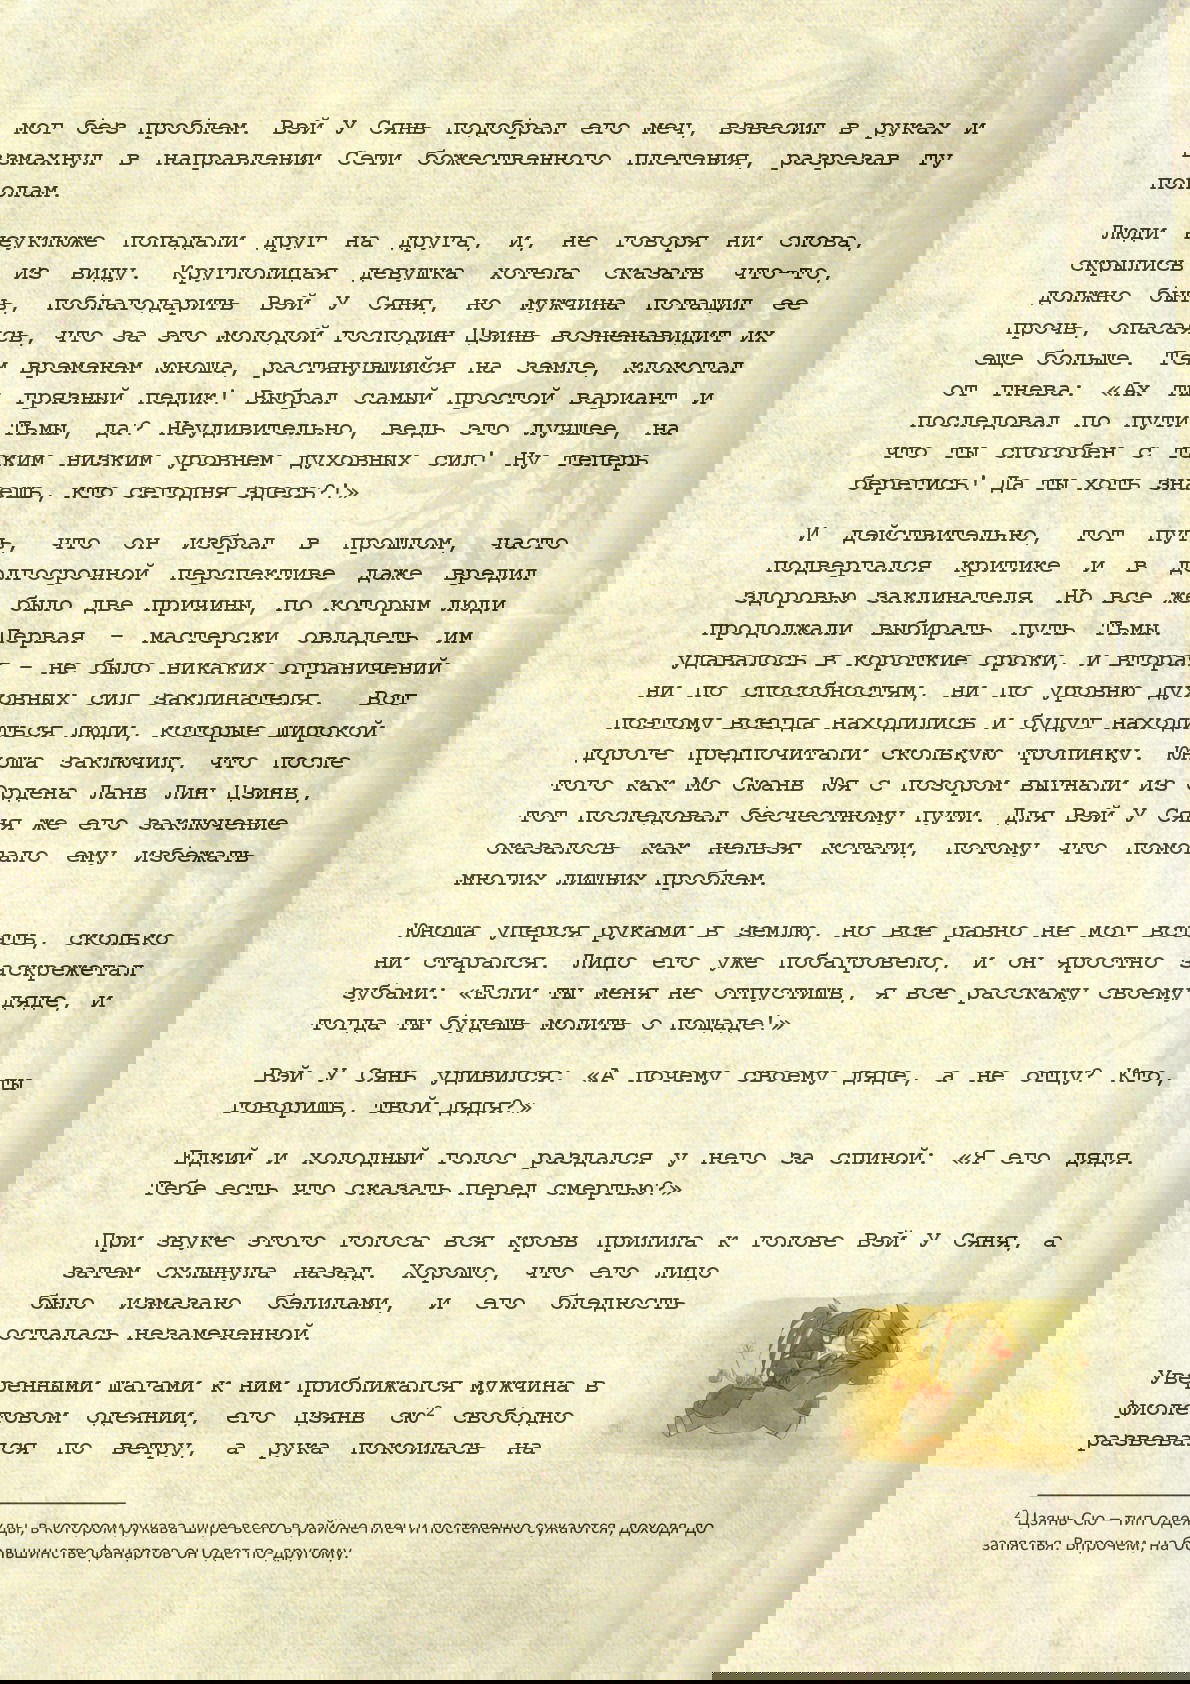 мог без проблем. Вэй У Сянь подобрал его меч, взвесил в руках и
взмахнул в направлении Сети божественного плетения, разрезав ту
пополам.
Люди неуклюже попадали друг на друга, и, не говоря ни слова,
скрылись из виду. Круглолицая девушка хотела сказать что-то,
должно быть, поблагодарить Вэй У Сяня, но мужчина потащил ее
прочь, опасаясь, что за это молодой господин Цзинь возненавидит их
еще больше. Тем временем юноша, растянувшийся на земле, клокотал
от гнева: «Ах ты грязный педик! Выбрал самый простой вариант и
последовал по пути Тьмы, да? Неудивительно, ведь это лучшее, на
что ты способен с таким низким уровнем духовных сил! Ну теперь
берегись! Да ты хоть знаешь, кто сегодня здесь?!»
И действительно, тот путь, что он избрал в прошлом, часто
подвергался критике и в долгосрочной перспективе даже вредил
здоровью заклинателя. Но все же было две причины, по которым люди
продолжали выбирать путь Тьмы. Первая – мастерски овладеть им
удавалось в короткие сроки, и вторая – не было никаких ограничений
ни по способностям, ни по уровню духовных сил заклинателя. Вот
поэтому всегда находились и будут находиться люди, которые широкой
дороге предпочитали скользкую тропинку. Юноша заключил, что после
того как Мо Сюань Юя с позором выгнали из Ордена Лань Лин Цзинь,
тот последовал бесчестному пути. Для Вэй У Сяня же его заключение
оказалось как нельзя кстати, потому что помогало ему избежать
многих лишних проблем.
Юноша уперся руками в землю, но все равно не мог встать, сколько
ни старался. Лицо его уже побагровело, и он яростно заскрежетал
зубами: «Если ты меня не отпустишь, я все расскажу своему дяде, и
тогда ты будешь молить о пощаде!»
Вэй У Сянь удивился: «А почему своему дяде, а не отцу? Кто, ты
говоришь, твой дядя?»
Едкий и холодный голос раздался у него за спиной: «Я его дядя.
Тебе есть что сказать перед смертью?»
При звуке этого голоса вся кровь прилила к голове Вэй У Сяня, а
затем схлынула назад. Хорошо, что его лицо
было измазано белилами, и его бледность
осталась незамеченной.
Уверенными шагами к ним приближался мужчина в
фиолетовом одеянии, его цзянь сю² свободно
развевался по ветру, а рука покоилась на
² Цзянь Сю – тип одежды, в котором рукава шире всего в районе плеч и постепенно сужаются, доходя до
запястья. Впрочем, на большинстве фанартов он одет по-другому.